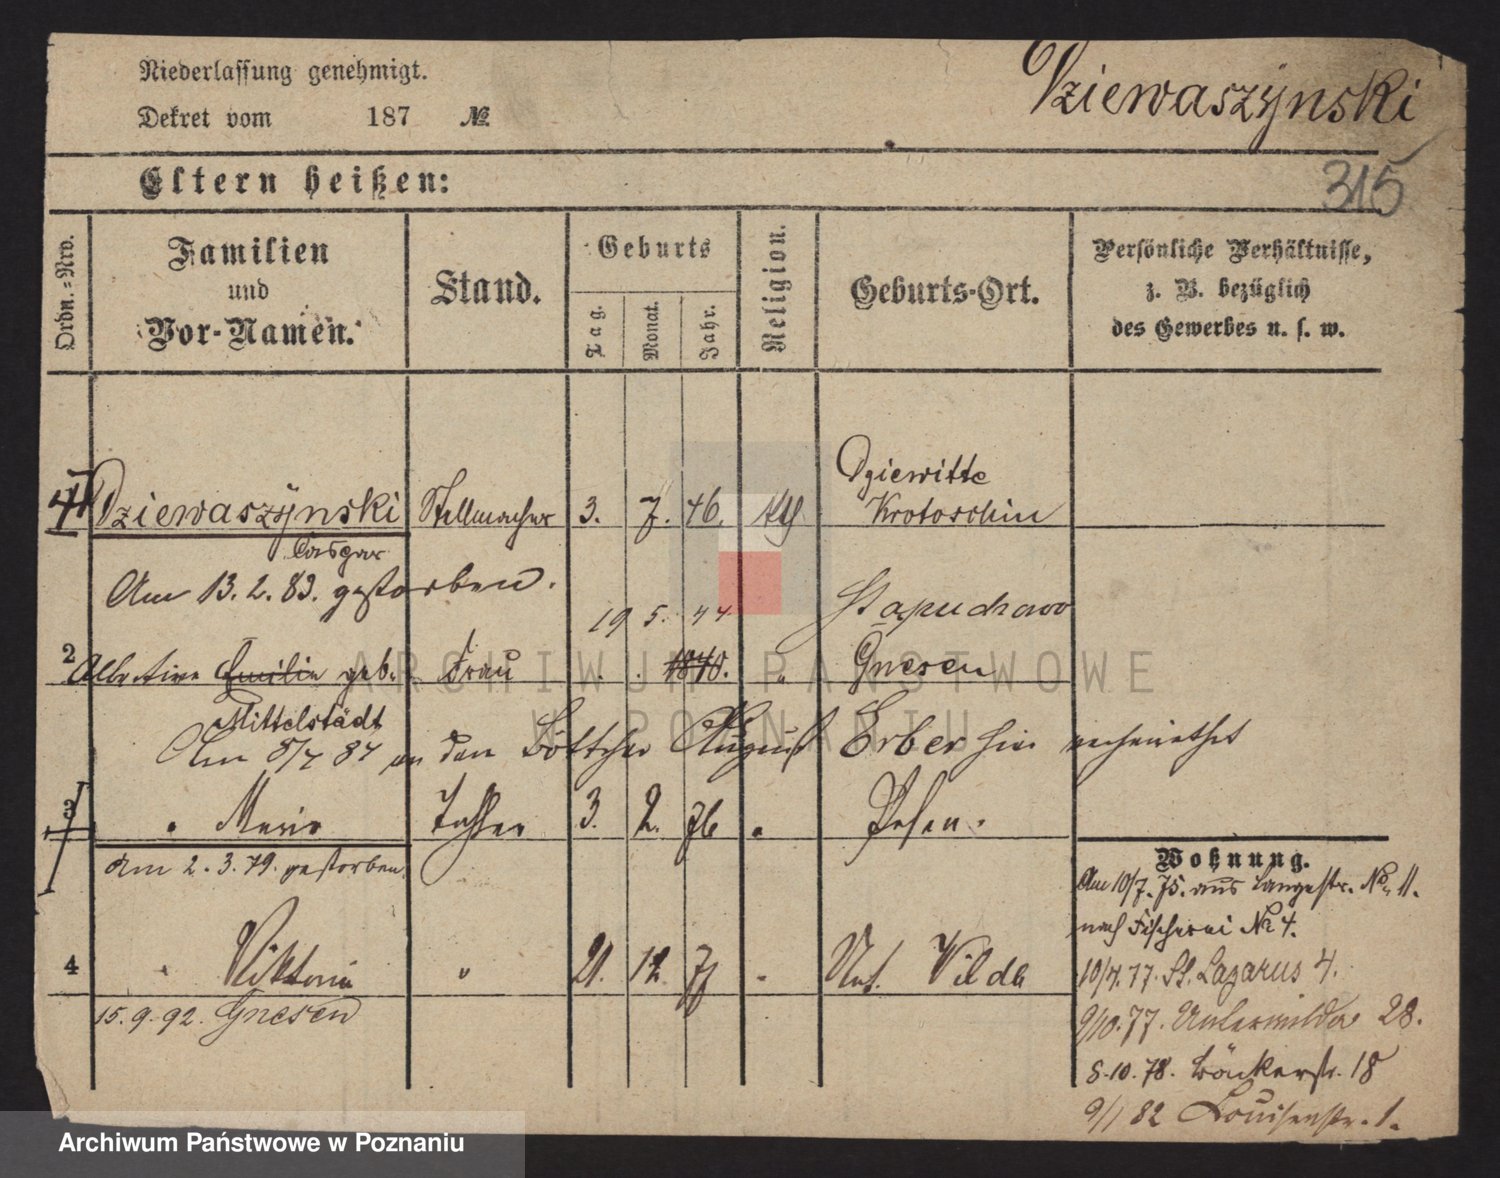 Niederlassung genehmigt.
Dziewaszÿnski
Dekret vom 187 №
Eltern heißen:
315
Ordn.-Nro.
Familien und Vor-Namen.
Stand.
Geburts
Tag.
Monat.
Jahr.
Religion.
Geburts-Ort.
Persönliche Verhältnisse,
z. B. bezüglich
des Gewerbes u. s. w.
Dziewitte
1 Dziewaszÿnski Stellmacher 3. 7. 46. kth Krotoschin
Casper
Am 13.2.83. gestorben.
19 5. 44 Stapuchowo
2 Albertine Emilie geb. Frau 1840. " Gnesen
Mittelstädt
Am 8/7 84 an den Böttcher August Erber hier verheirathet
3 " Marie Tochter 3. 2. 76 " Posen.
Am 2.3.79. gestorben.
4 " Viktoria " 21. 12. 77 " Unt. Wilda
15.9.92. Gnesen
Wohnung.
Am 10/7. 75. aus Langestr. No. 11.
nach Fischerei No 4.
10/4. 77. St. Lazarus 4.
9/10. 77. Unterwilda 28.
8.10.78. Bäckerstr. 18
9/1 82 Louisenstr. 1.
ARCHIWUM PAŃSTWOWE
W POZNANIU
Archiwum Państwowe w Poznaniu